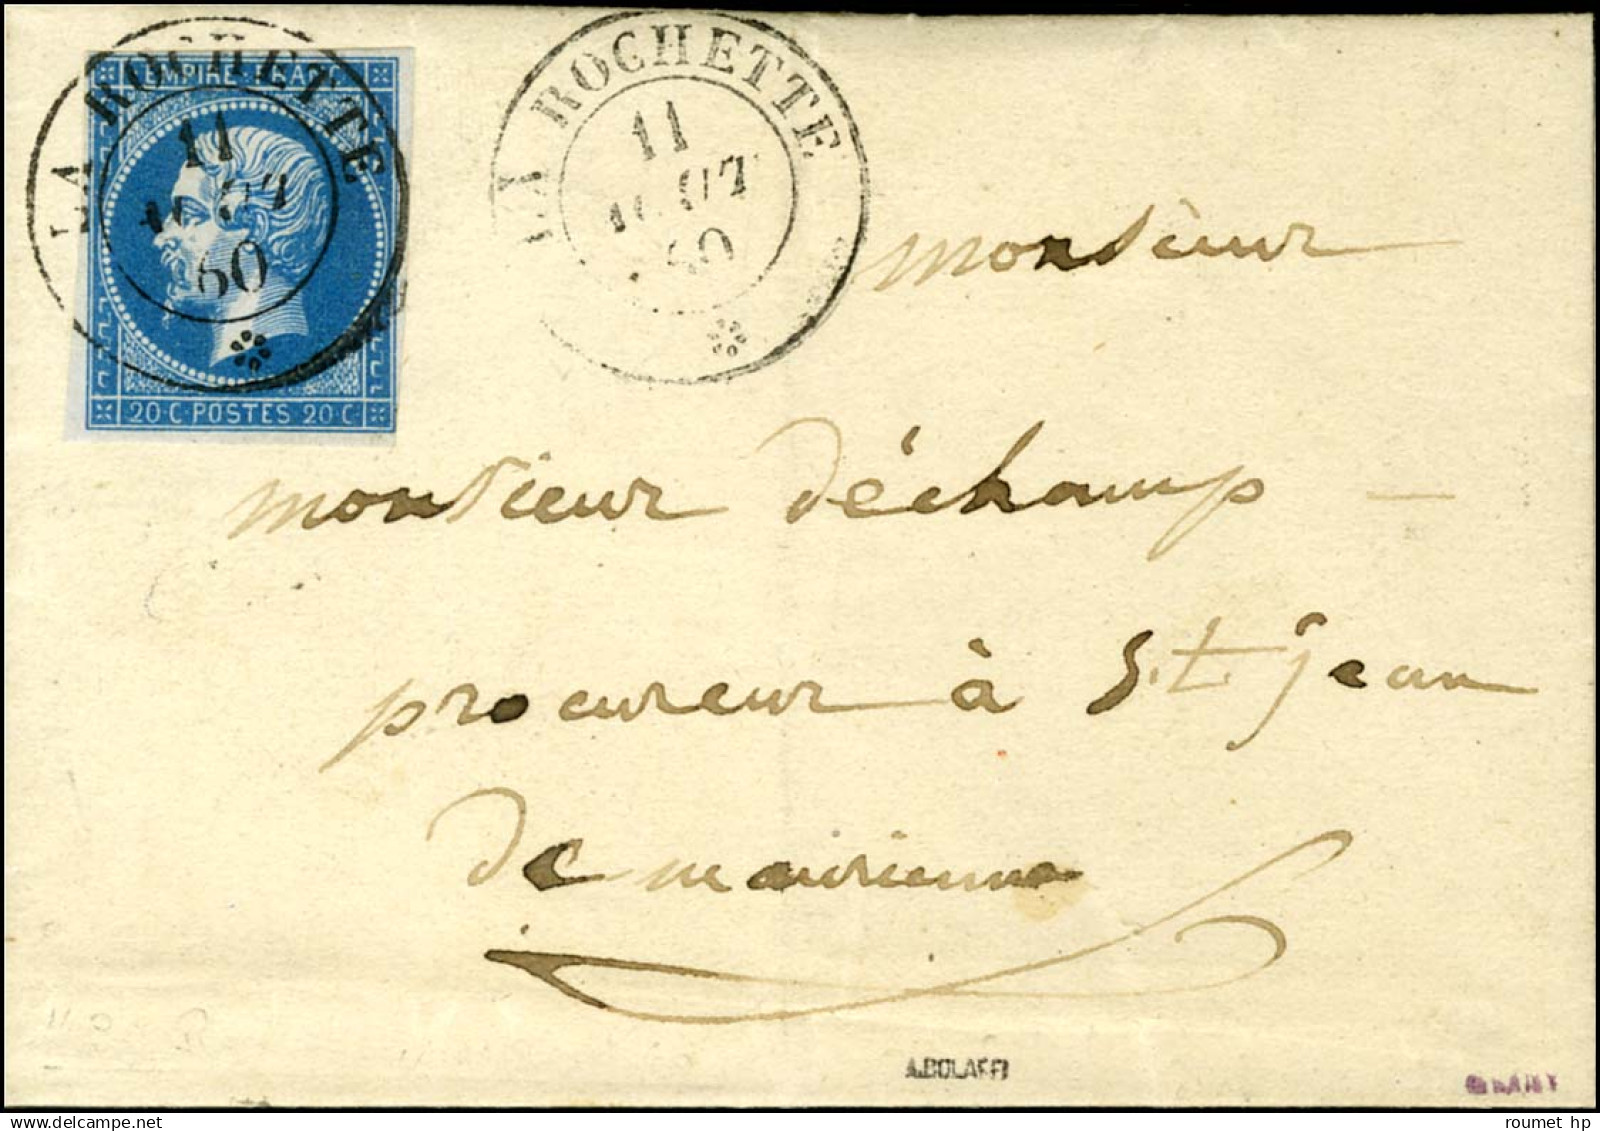 EMPIRE FRANC.
LA ROCHETTE
11
AOUT
60
20·C·POSTES 20·C
LA ROCHETTE
11
AOUT
60
monsieur
monsieur déchamp
procureur à S.t. jean
de mairienne
A.BOLAFFI
roumet hp